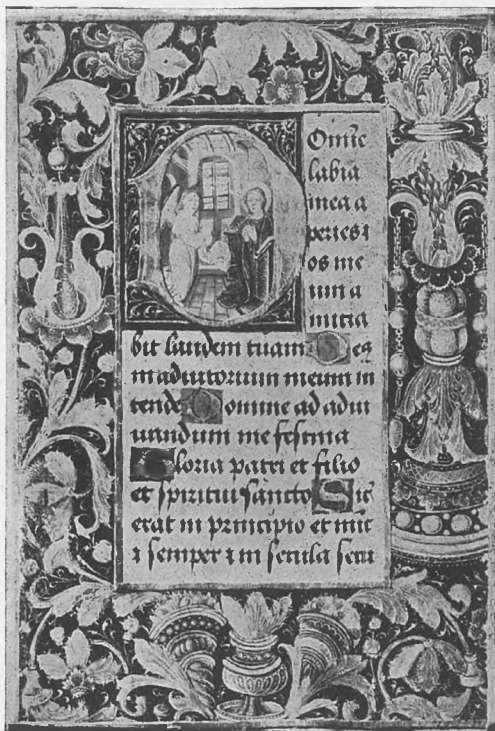 Omīe
labia
mea a
peries ⁊
os me
um a
nūtia
bit laudem tuam Des
in adiutorium meum in
tende Domine ad adiu
uandum me festina
Gloria patri et filio
et spiritui sancto Sic
erat in principio et nūc
⁊ semper ⁊ in secula secu